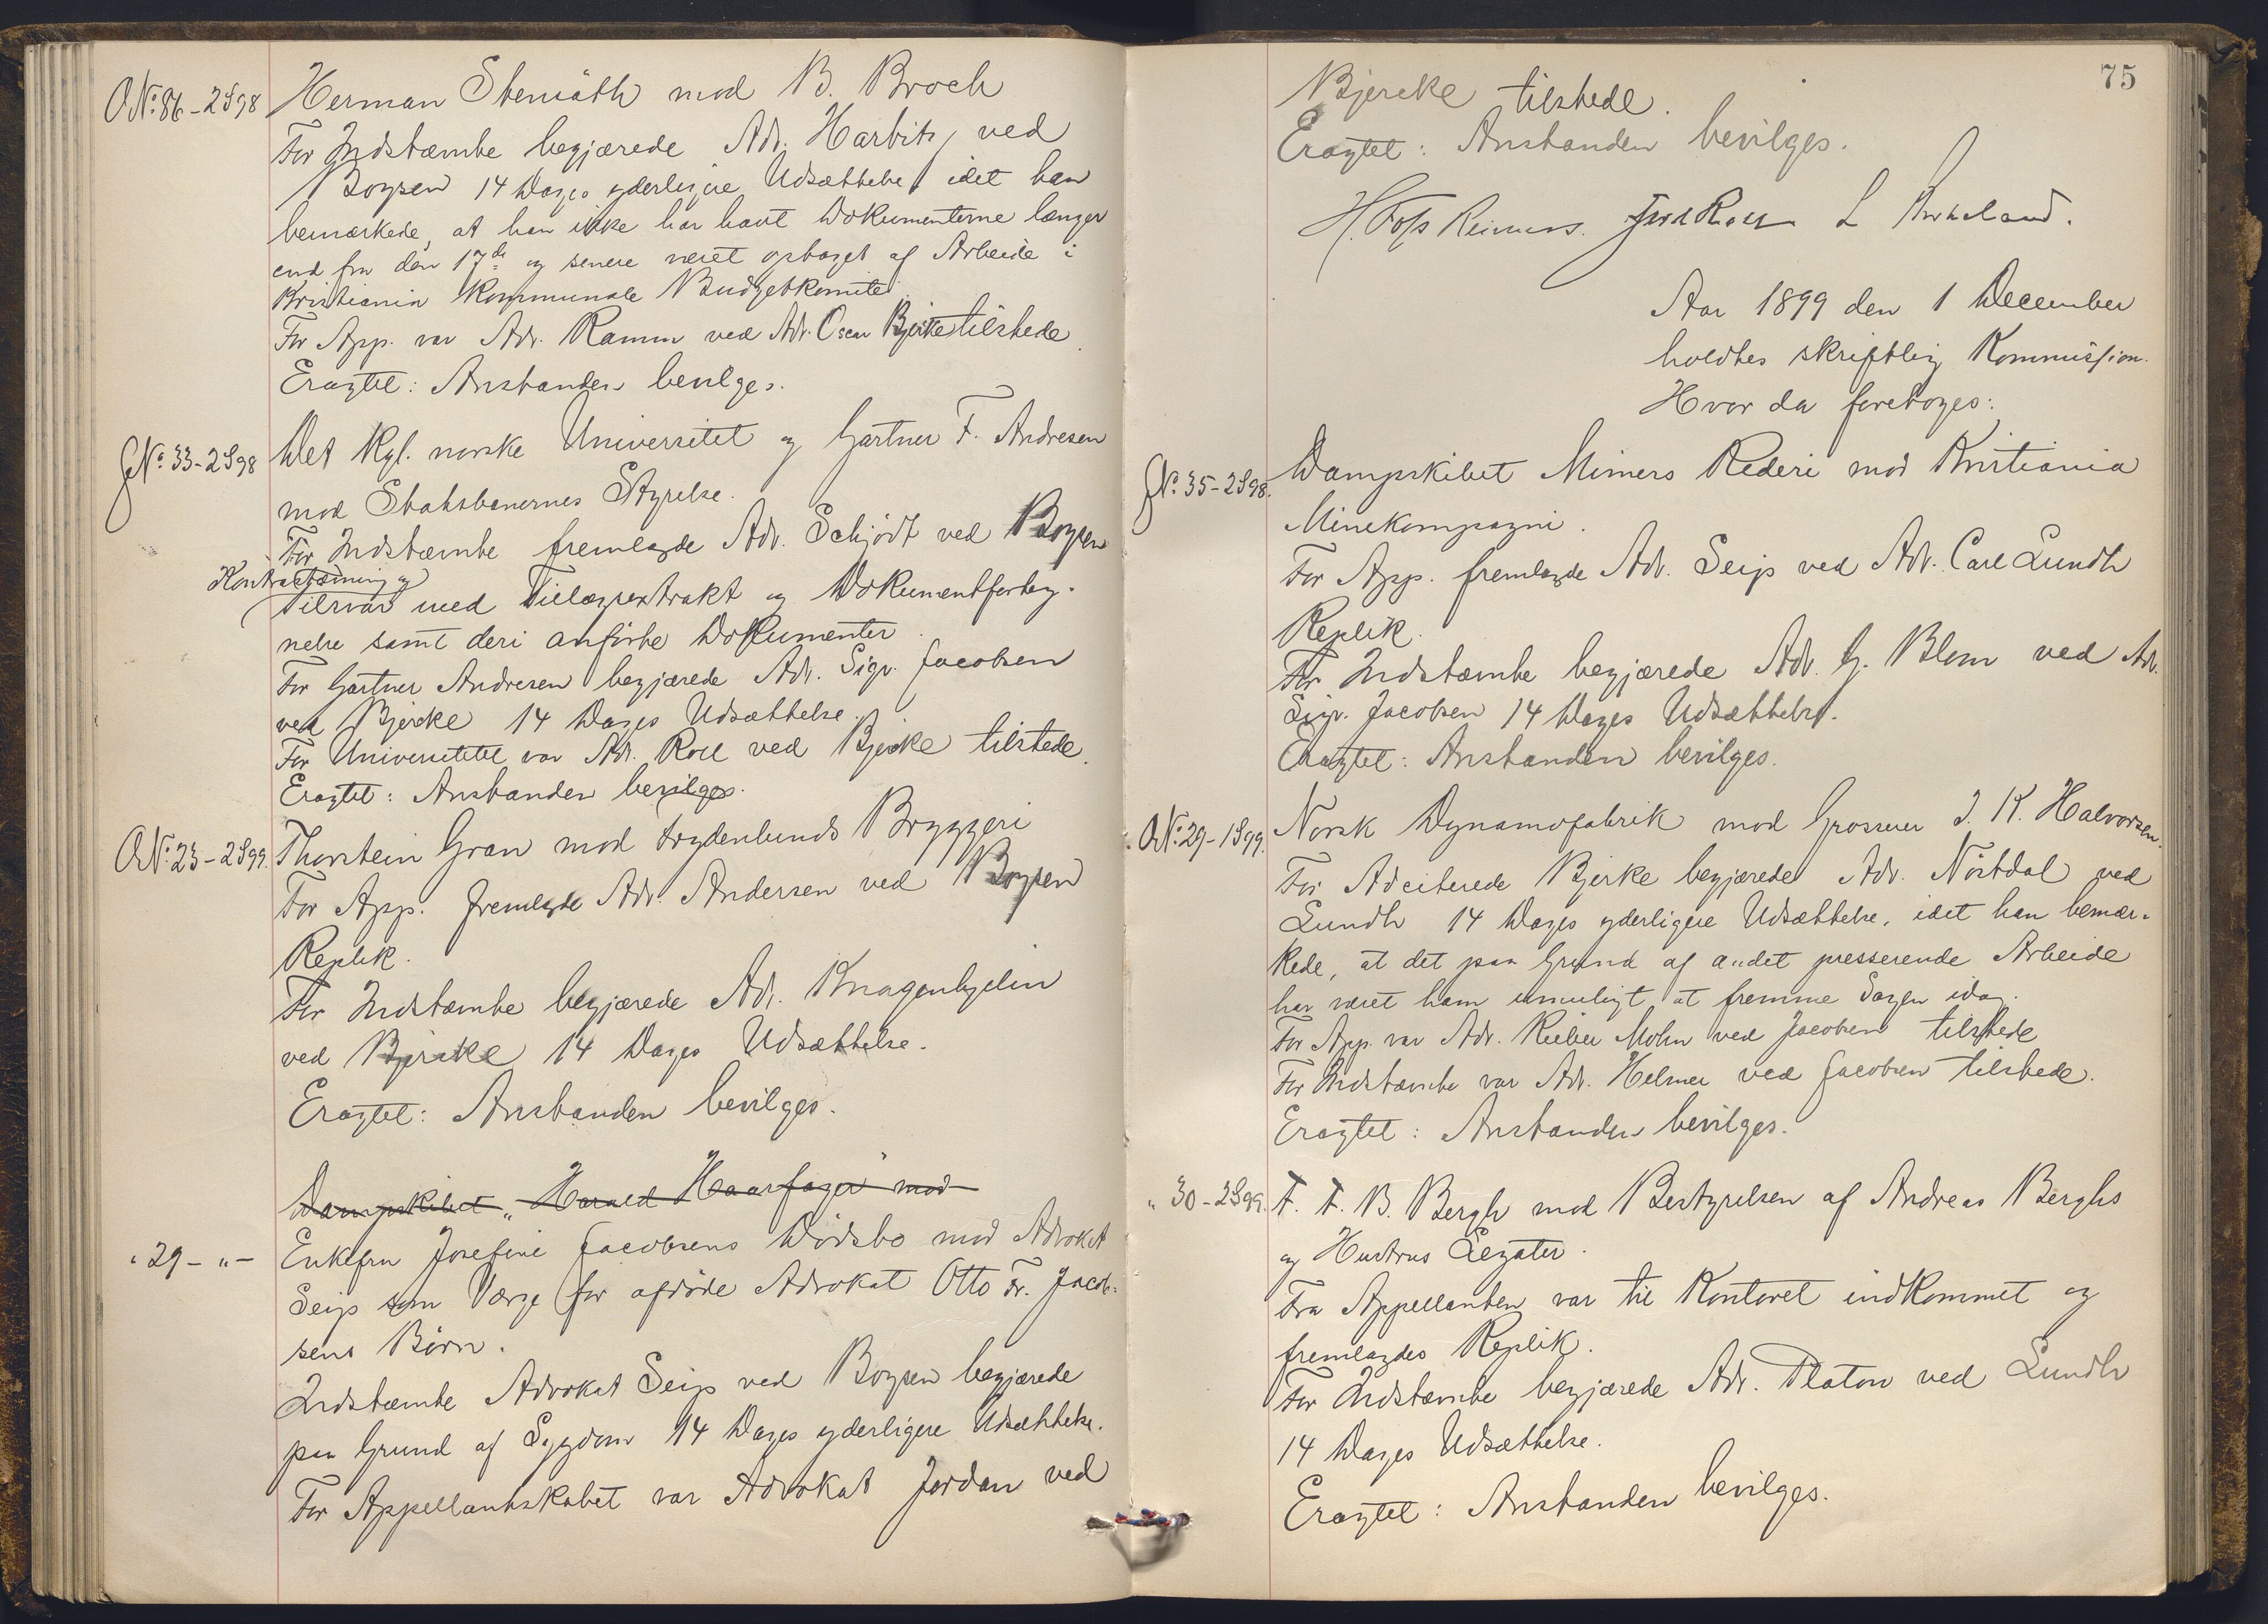 O No. 86 - 2 S 98 Herman Stenvåth mod B. Broch
For Indstævnte begjærede Adv. Harbitz ved
Boysen 14 Dages yderligere Udsættelse, idet han
bemærkede, at han ikke har havt Dokumenterne længer
end fra den 17de og senere været optaget af Arbeide i
Kristiania Kommunale Budgetkomite.
For App. var Adv. Ramm ved Adv. Oscar Bjerke tilstede.
Eragtet: Anstanden bevilges.
G No. 33 - 2 S 98 Det Kgl. norske Universitet og Gartner F. Andresen
mod Statsbanernes Styrelse.
For Indstævnte fremlagde Adv. Schjödt ved Boysen
Kontrastævning og
Tilsvar med Tillægsextrakt og Dokumentforteg-
nelse samt deri anførte Dokumenter.
For Gartner Andresen begjærede Adv. Sigv. Jacobsen
ved Bjercke 14 Dages Udsættelse.
For Universitetet var Adv. Roll ved Bjercke tilstede.
Eragtet: Anstanden bevilges.
O No. 23 - 2 S 99. Thorstein Gran mod Frydenlunds Bryggeri
For App. fremlagde Adv. Andersen ved Boysen
Replik.
For Indstævnte begjærede Adv. Knagenhjelm
ved Bjercke 14 Dages Udsættelse.
Eragtet: Anstanden bevilges.
Dampskibet „Harald Haarfager" mod
" 29 - " - Enkefru Josefine Jacobsens Dødsbo mod Advokat
Seip som Værge for afdøde Advokat Otto Fr. Jacob-
sens Børn.
Indstævnte Advokat Seip ved Boysen begjærede
paa Grund af Sygdom 14 Dages yderligere Udsættelse.
For Appellantskabet var Advokat Jordan ved
75
Bjercke tilstede.
Eragtet: Anstanden bevilges.
H. Foss Reimers. L
Aar 1899 den 1 December
holdtes skriftlig Kommission.
Hvor da foretoges:
G No. 35 - 2 S 98. Dampskibet Mimers Rederi mod Kristiania
Minekompagni.
For App. fremlagde Adv. Seip ved Adv. Carl Lundh
Replik.
For Indstævnte begjærede Adv. G. Blom ved Adv.
Sigv. Jacobsen 14 Dages Udsættelse.
Eragtet: Anstanden bevilges.
O No. 29 - 1 S 99. Norsk Dynamofabrik mod Grosserer I. K. Halvorsen.
For Adciterede Bjerke begjærede Adv. Nörtdal ved
Lundh 14 Dages yderligere Udsættelse, idet han bemær-
kede, at det paa Grund af andet presserende Arbeide
har været ham umuligt at fremme Sagen idag.
For App. var Adv. Rieber Mohn ved Jacobsen tilstede
For Indstævnte var Adv. Helmer ved Jacobsen tilstede.
Eragtet: Anstanden bevilges.
" 30 - 2 S 99. F. F. B. Bergh mod Bestyrelsen af Andreas Berghs
og Hustrus Legater.
Fra Appellanten var til Kontoret indkommet og
fremlagdes Replik.
For Indstævnte begjærede Adv. Platou ved Lundh
14 Dages Udsættelse.
Eragtet: Anstanden bevilges.